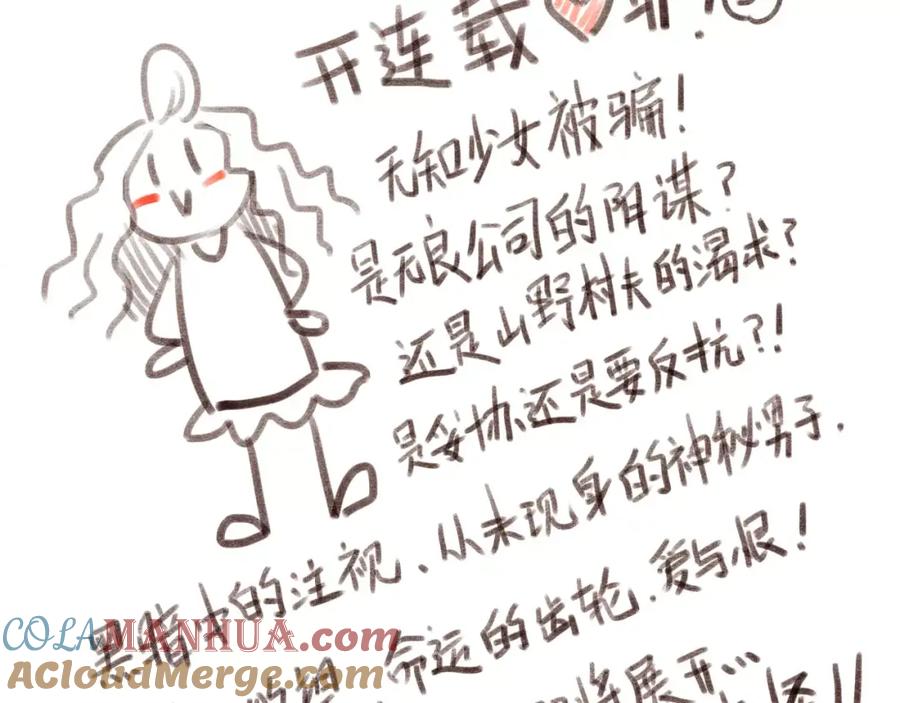 开连载
无知少女被骗!
是无良公司的阳谋?
还是山野村夫的渴求?
是妥协还是要反抗?!
黑暗中的注视、从未现身的神秘男子.
命运的齿轮、爱与恨!
将展开...
COLAMANHUA.com
ACloudMerge.com